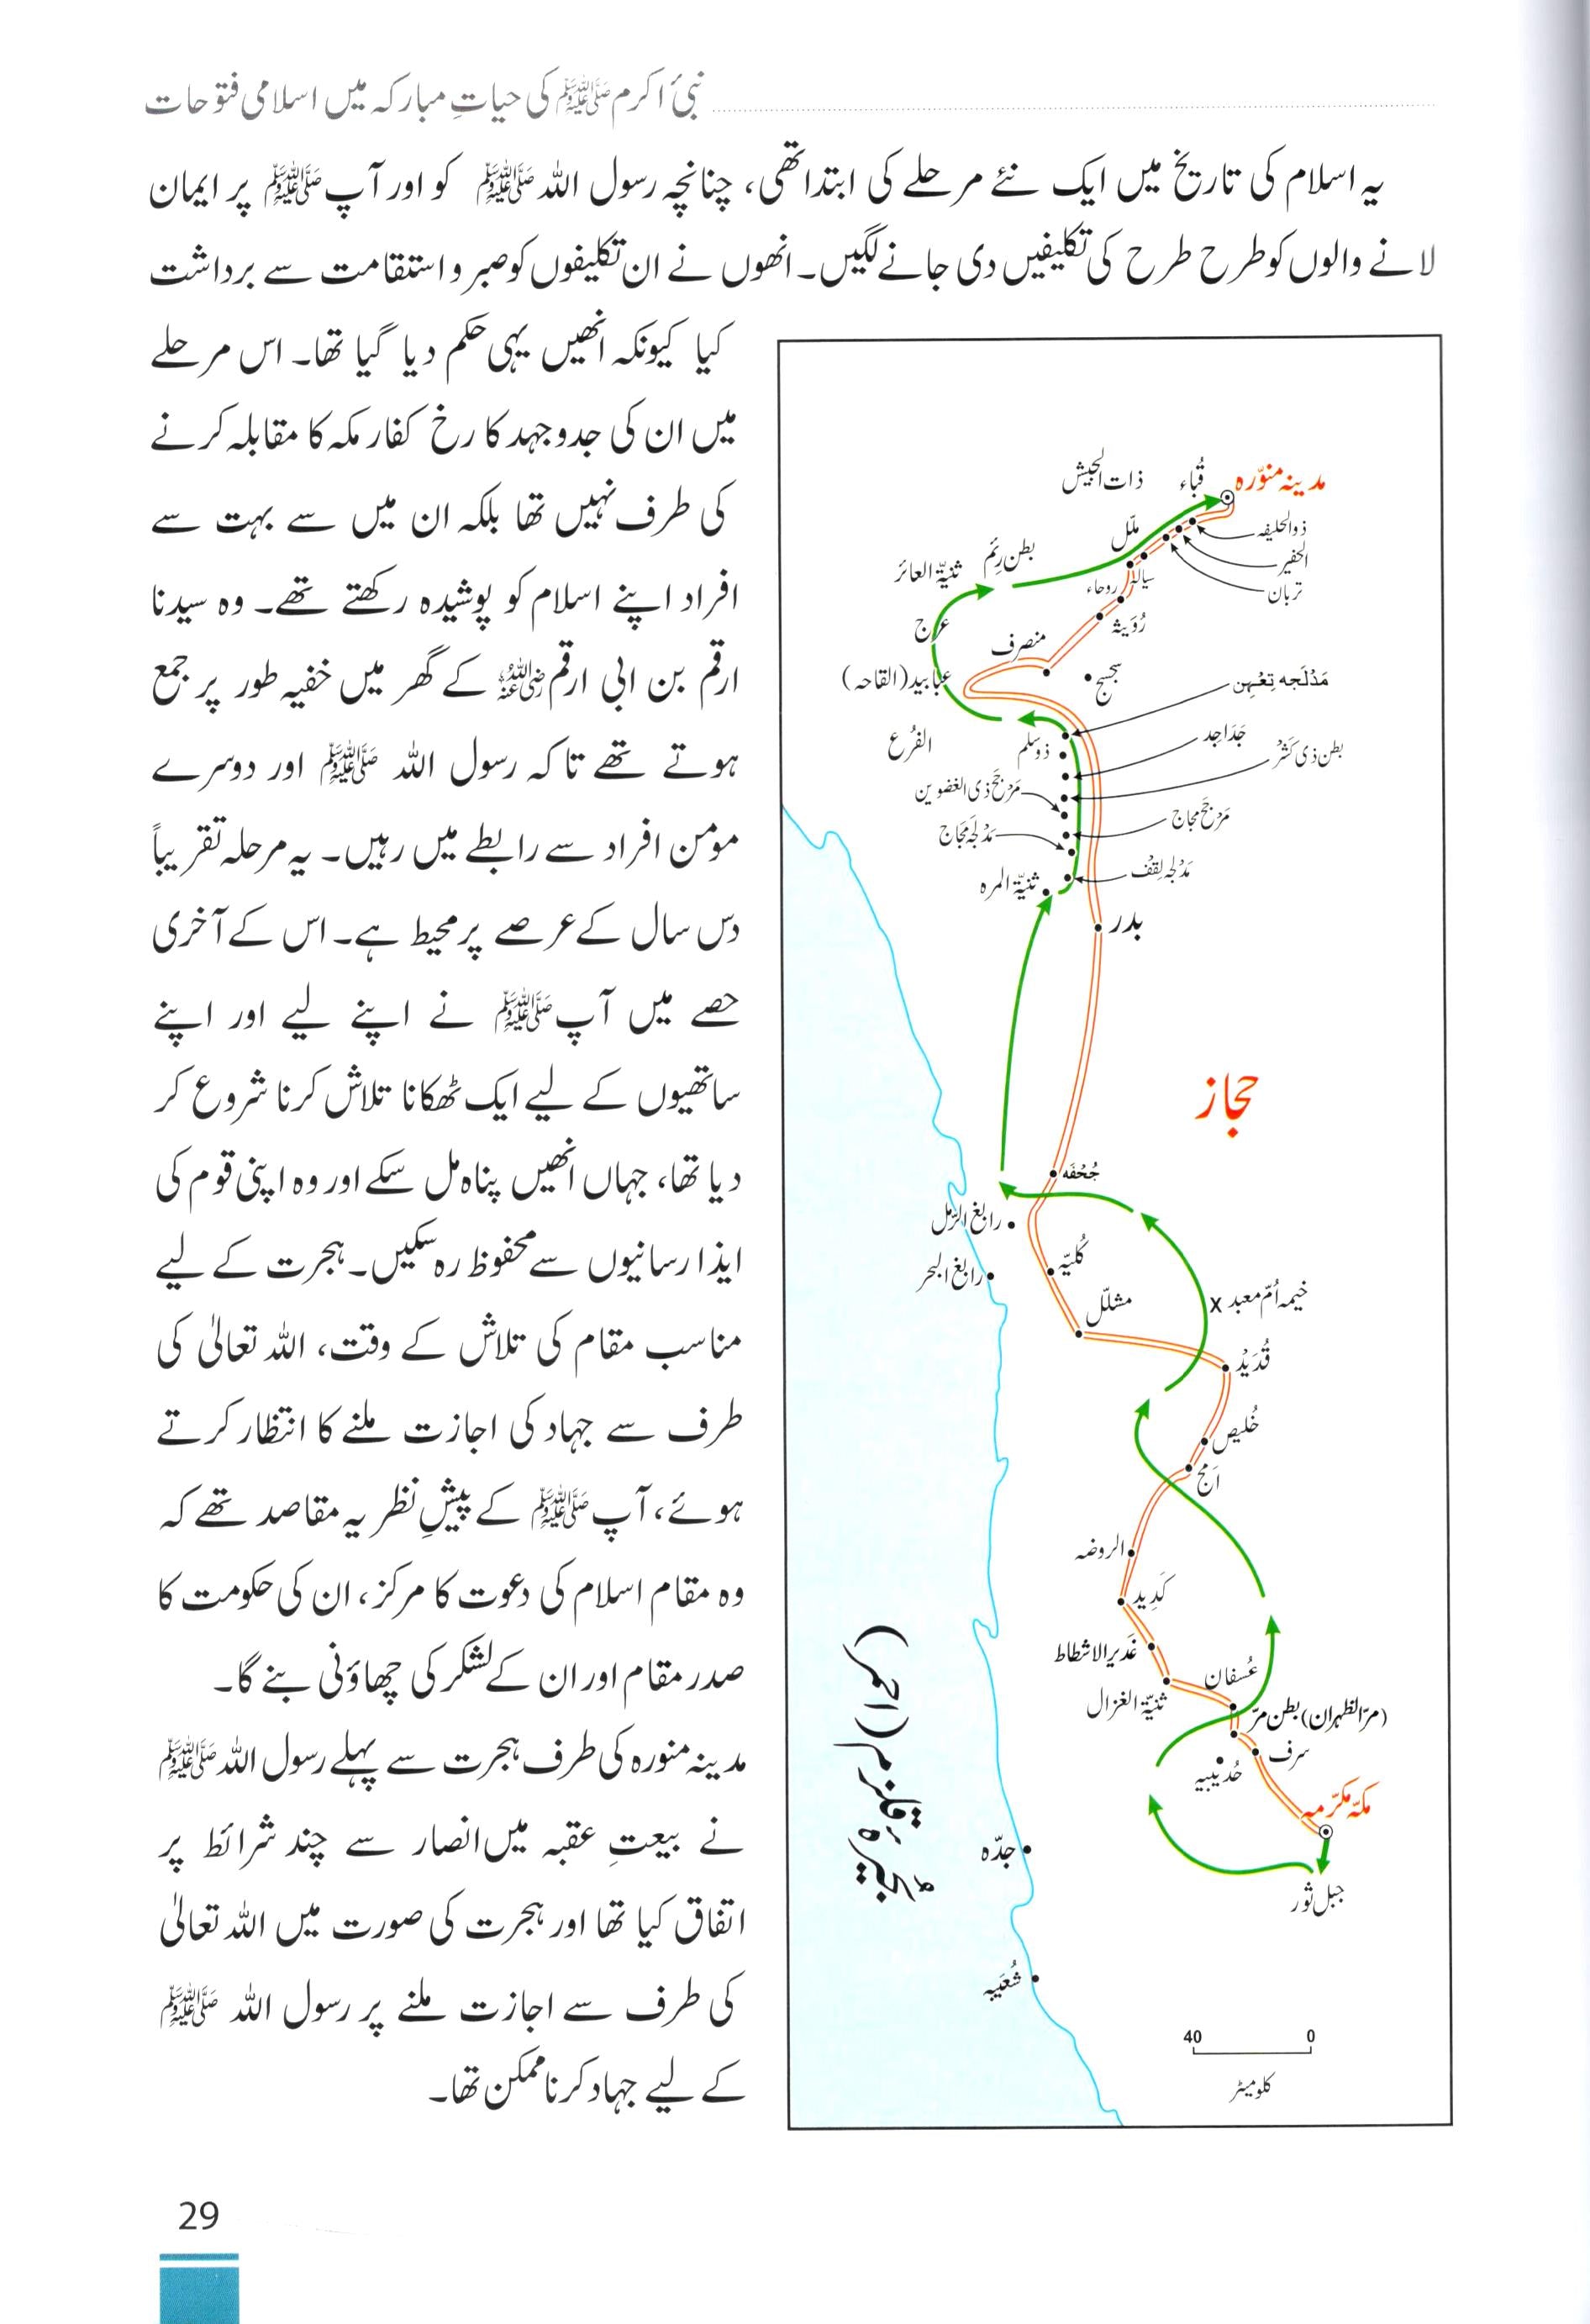 نبیٔ اکرم ﷺ کی حیاتِ مبارکہ میں اسلامی فتوحات
یہ اسلام کی تاریخ میں ایک نئے مرحلے کی ابتدا تھی، چنانچہ رسول اللہ ﷺ کو اور آپ ﷺ پر ایمان
لانے والوں کو طرح طرح کی تکلیفیں دی جانے لگیں۔ انھوں نے ان تکلیفوں کو صبر و استقامت سے برداشت
کیا کیونکہ انھیں یہی حکم دیا گیا تھا۔ اس مرحلے
میں ان کی جدوجہد کا رخ کفار مکہ کا مقابلہ کرنے
کی طرف نہیں تھا بلکہ ان میں سے بہت سے
افراد اپنے اسلام کو پوشیدہ رکھتے تھے۔ وہ سیدنا
ارقم بن ابی ارقم رضی اللہ عنہ کے گھر میں خفیہ طور پر جمع
ہوتے تھے تاکہ رسول اللہ ﷺ اور دوسرے
مومن افراد سے رابطے میں رہیں۔ یہ مرحلہ تقریباً
دس سال کے عرصے پر محیط ہے۔ اس کے آخری
حصے میں آپ ﷺ نے اپنے لیے اور اپنے
ساتھیوں کے لیے ایک ٹھکانا تلاش کرنا شروع کر
دیا تھا، جہاں انھیں پناہ مل سکے اور وہ اپنی قوم کی
ایذا رسانیوں سے محفوظ رہ سکیں۔ ہجرت کے لیے
مناسب مقام کی تلاش کے وقت، اللہ تعالیٰ کی
طرف سے جہاد کی اجازت ملنے کا انتظار کرتے
ہوئے، آپ ﷺ کے پیشِ نظر یہ مقاصد تھے کہ
وہ مقام اسلام کی دعوت کا مرکز، ان کی حکومت کا
صدر مقام اور ان کے لشکر کی چھاؤنی بنے گا۔
مدینہ منورہ کی طرف ہجرت سے پہلے رسول اللہ ﷺ
نے بیعتِ عقبہ میں انصار سے چند شرائط پر
اتفاق کیا تھا اور ہجرت کی صورت میں اللہ تعالیٰ
کی طرف سے اجازت ملنے پر رسول اللہ ﷺ
کے لیے جہاد کرنا ممکن تھا۔
مدینہ منوّرہ
قُباء
ذات الجیش
ذوالحلیفہ
الحفیر
تربان
ملَل
بطن رِئم
ثنیّۃ العائر
سیالہ
روحاء
رُوَیثہ
عرج
منصرف
سجسج
عبابید (القاحہ)
مَدْلَجه تِعْهِن
الفُرع
ذوسلم
جَداجد
بطن ذی کَشْر
مَرْجَح ذی الغضوین
مَرْجَح مجاج
مَدْلجہ مَجاج
مَدْلجہ لِقْف
ثنیّۃ المرہ
بدر
حجاز
جُحْفَه
رابغ الرّمل
کُلیّہ
رابغ البحر
مشلّل
خیمہ اُمّ معبد x
قُدَیْد
خُلیص
اَمَج
الروضہ
کَدِید
غَدیر الاشطاط
عُسفان
ثنیّۃ الغزال
(مرّالظہران) بطن مرّ
سرف
حُدَیبیہ
مکّہ مکرّمہ
جبل ثور
جدّہ
شُعَیبہ
بُحیرۂ قلزم (احمر)
40 0
کلومیٹر
29